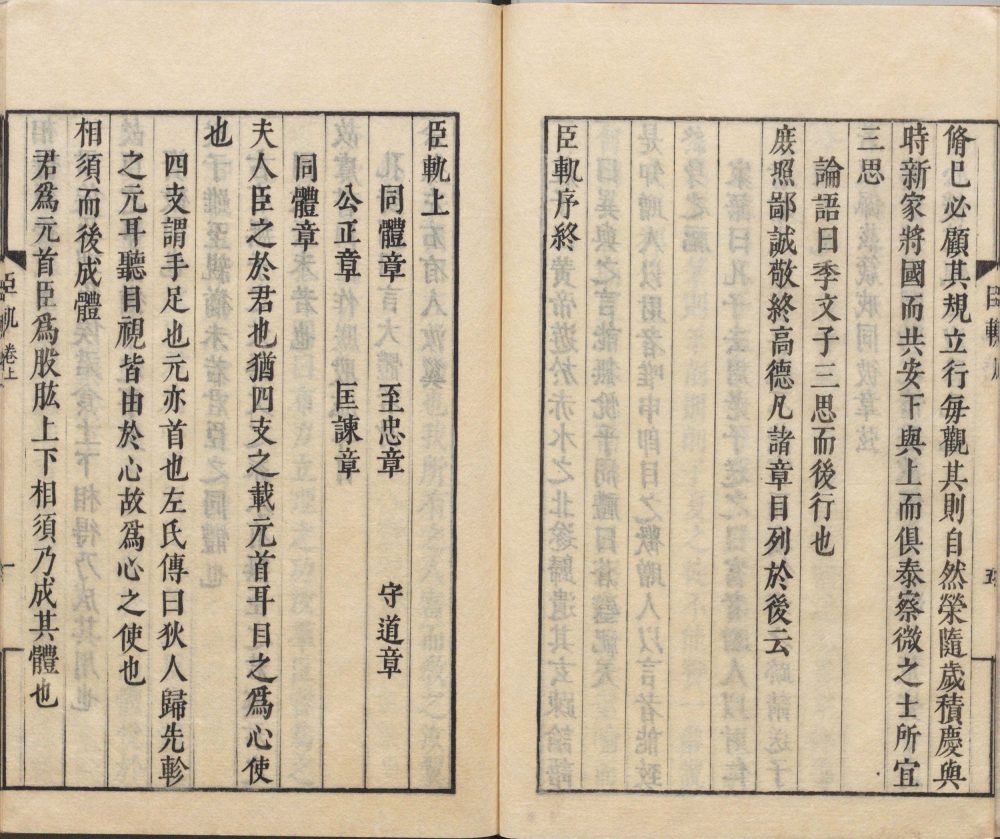 脩巳必顧其規立行每觀其則自然榮隨歲積慶與
時新家將國而共安下與上而俱泰察微之士所宜
三思
論語曰季文子三思而後行也
庻照鄙誠敬終高德凡諸章目列於後云
臣軌序終
臣軌上
同體章 至忠章 守道章
公正章 匡諫章
同體章
夫人臣之於君也猶四支之載元首耳目之爲心使
也
四支謂手足也元亦首也左氏傳曰狄人歸先軫
之元耳聽目視皆由於心故爲心之使也
相須而後成體
君爲元首臣爲股肱上下相須乃成其體也
臣軌 卷上 一